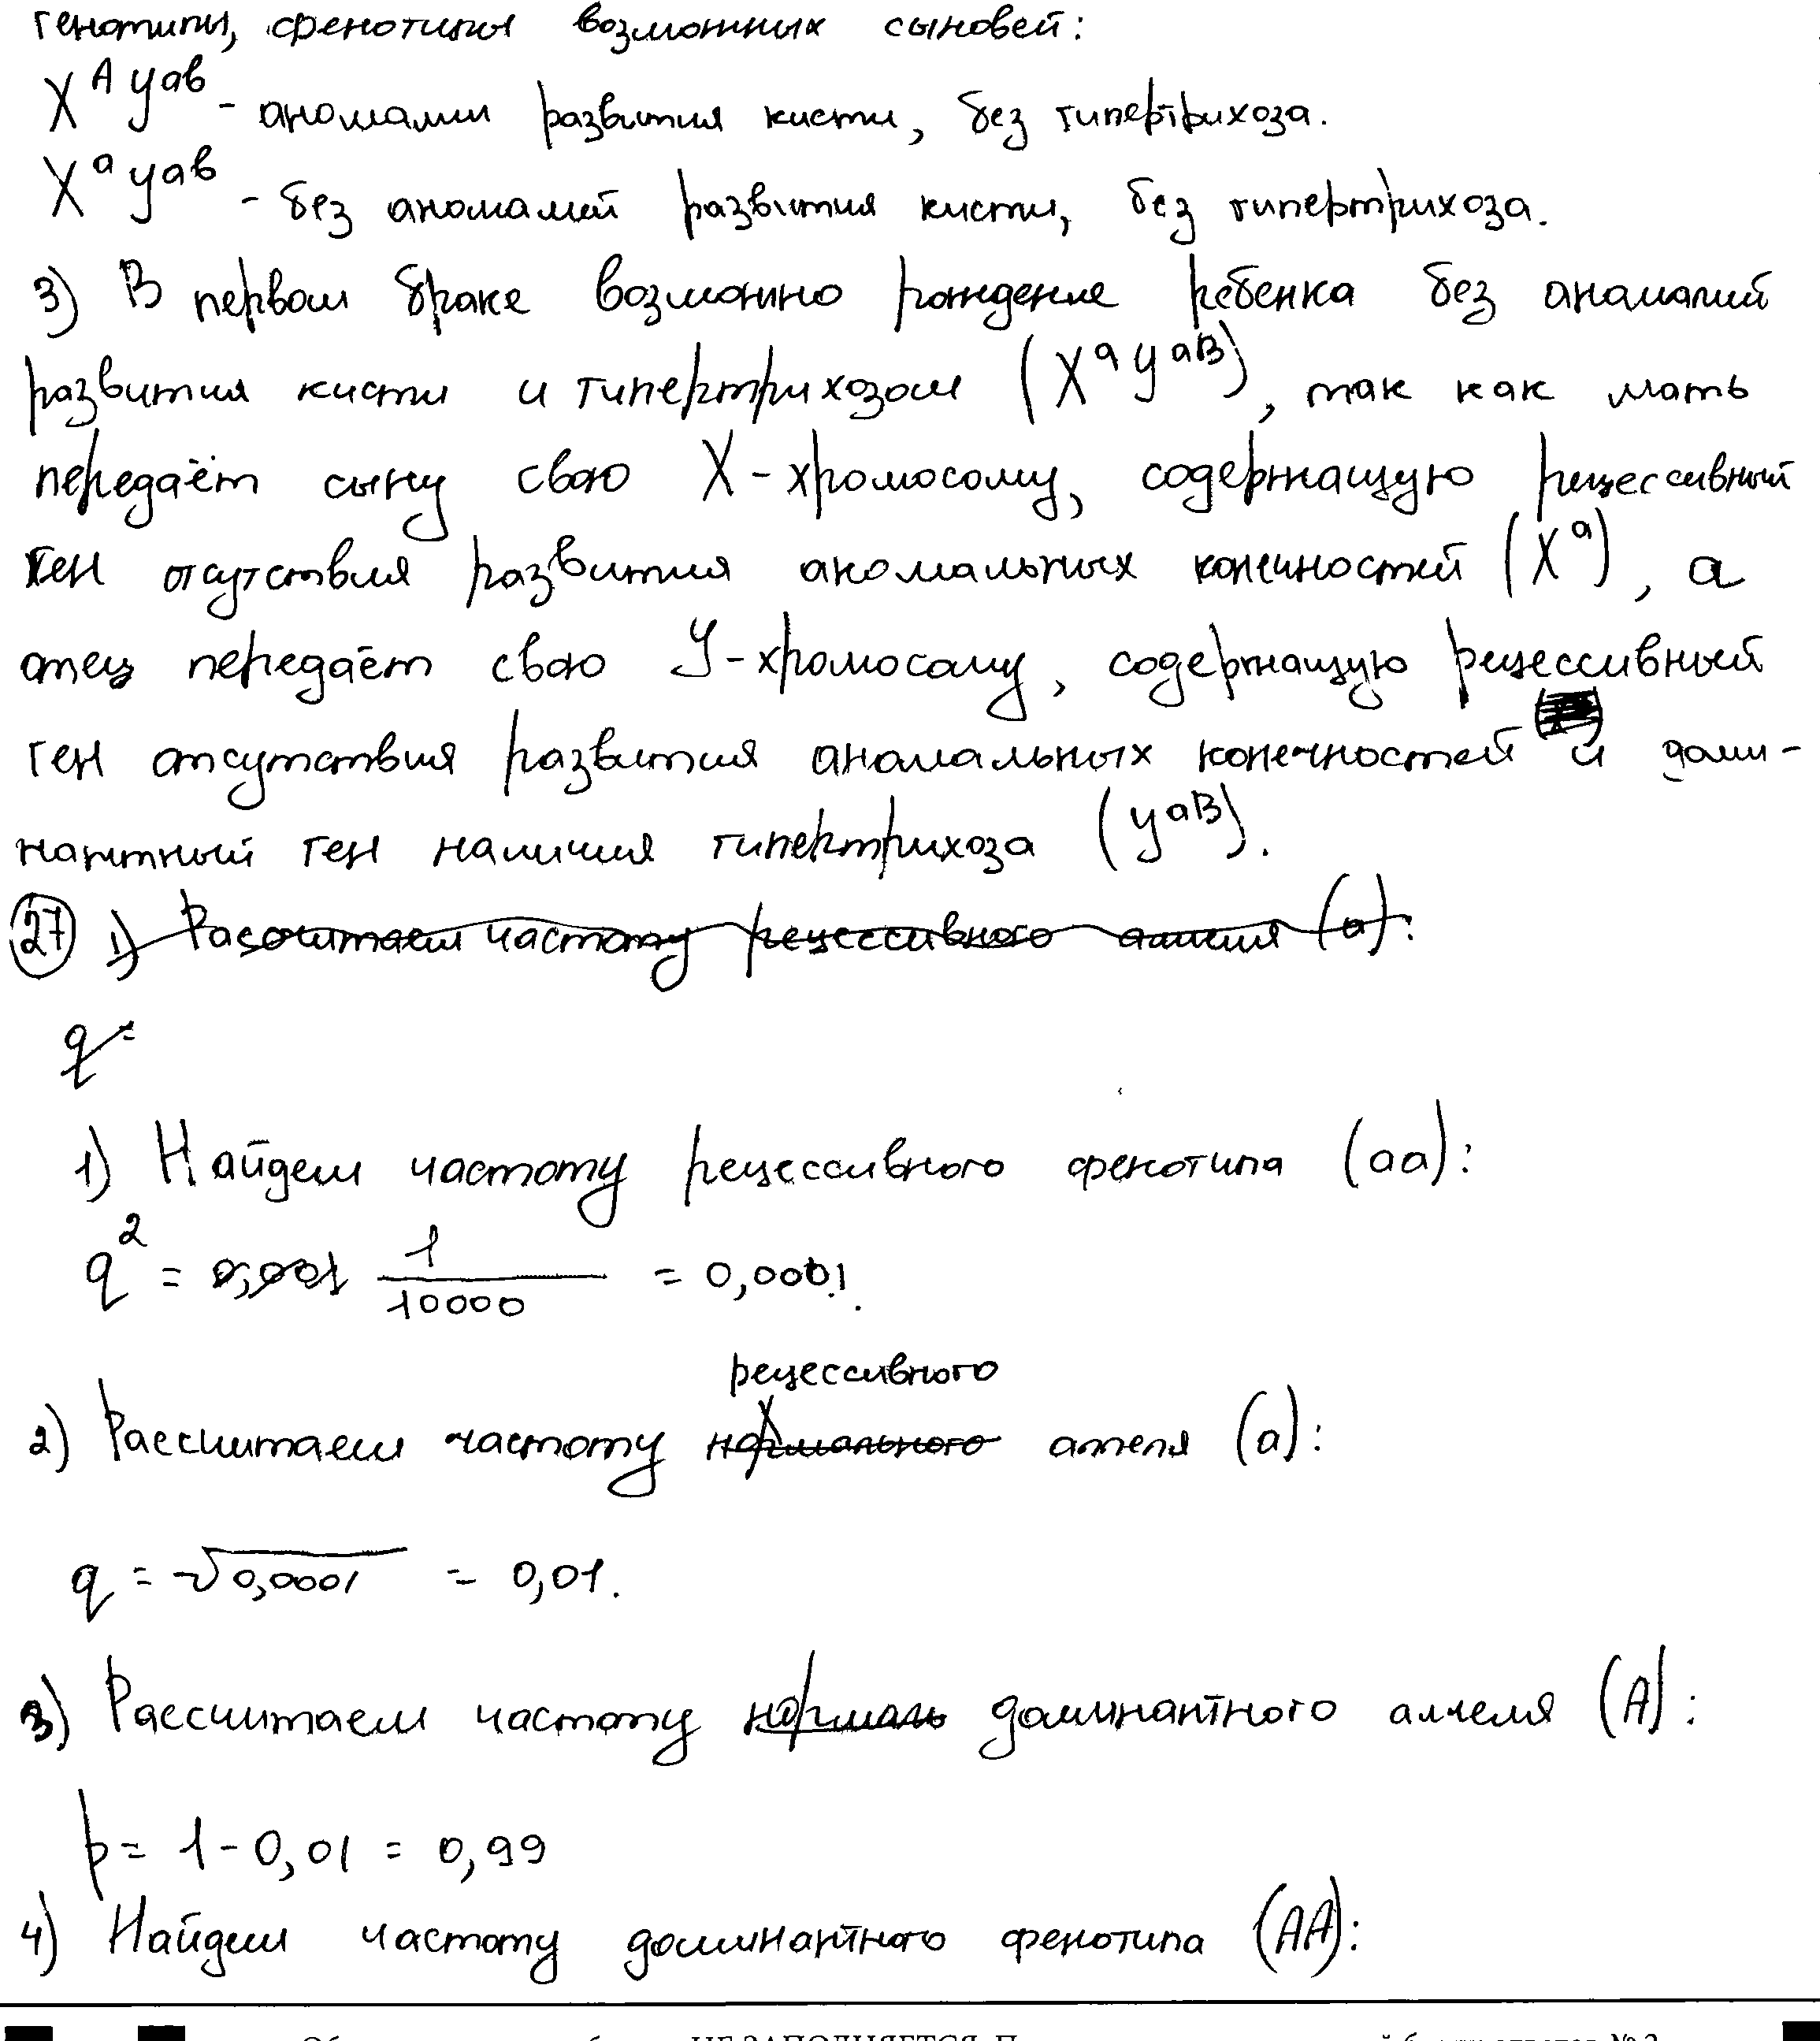 генотипы, фенотипы возможных сыновей:
X^A y^ab - аномалии развития кисти, без гипертрихоза.
X^a y^ab - без аномалий развития кисти, без гипертрихоза.
3) В первом браке возможно рождение ребенка без аномалий
развития кисти и гипертрихозом (X^a y^aB), так как мать
передаёт сыну свою X-хромосому, содержащую рецессивный
ген отсутствия развития аномальных конечностей (X^a), а
отец передаёт свою У-хромосому, содержащую рецессивный
ген отсутствия развития аномальных конечностей и доми-
нантный ген наличия гипертрихоза (y^aB).
27 1) Рассчитаем частоту рецессивного аллеля (a):
q=
1) Найдем частоту рецессивного фенотипа (aa):
q^2 = 0,001 1/10000 = 0,0001.
рецессивного
2) Рассчитаем частоту нормального аллеля (a):
q = √0,0001 = 0,01.
3) Рассчитаем частоту нормаль доминантного аллеля (A):
p = 1 - 0,01 = 0,99
4) Найдем частоту доминантного фенотипа (AA):